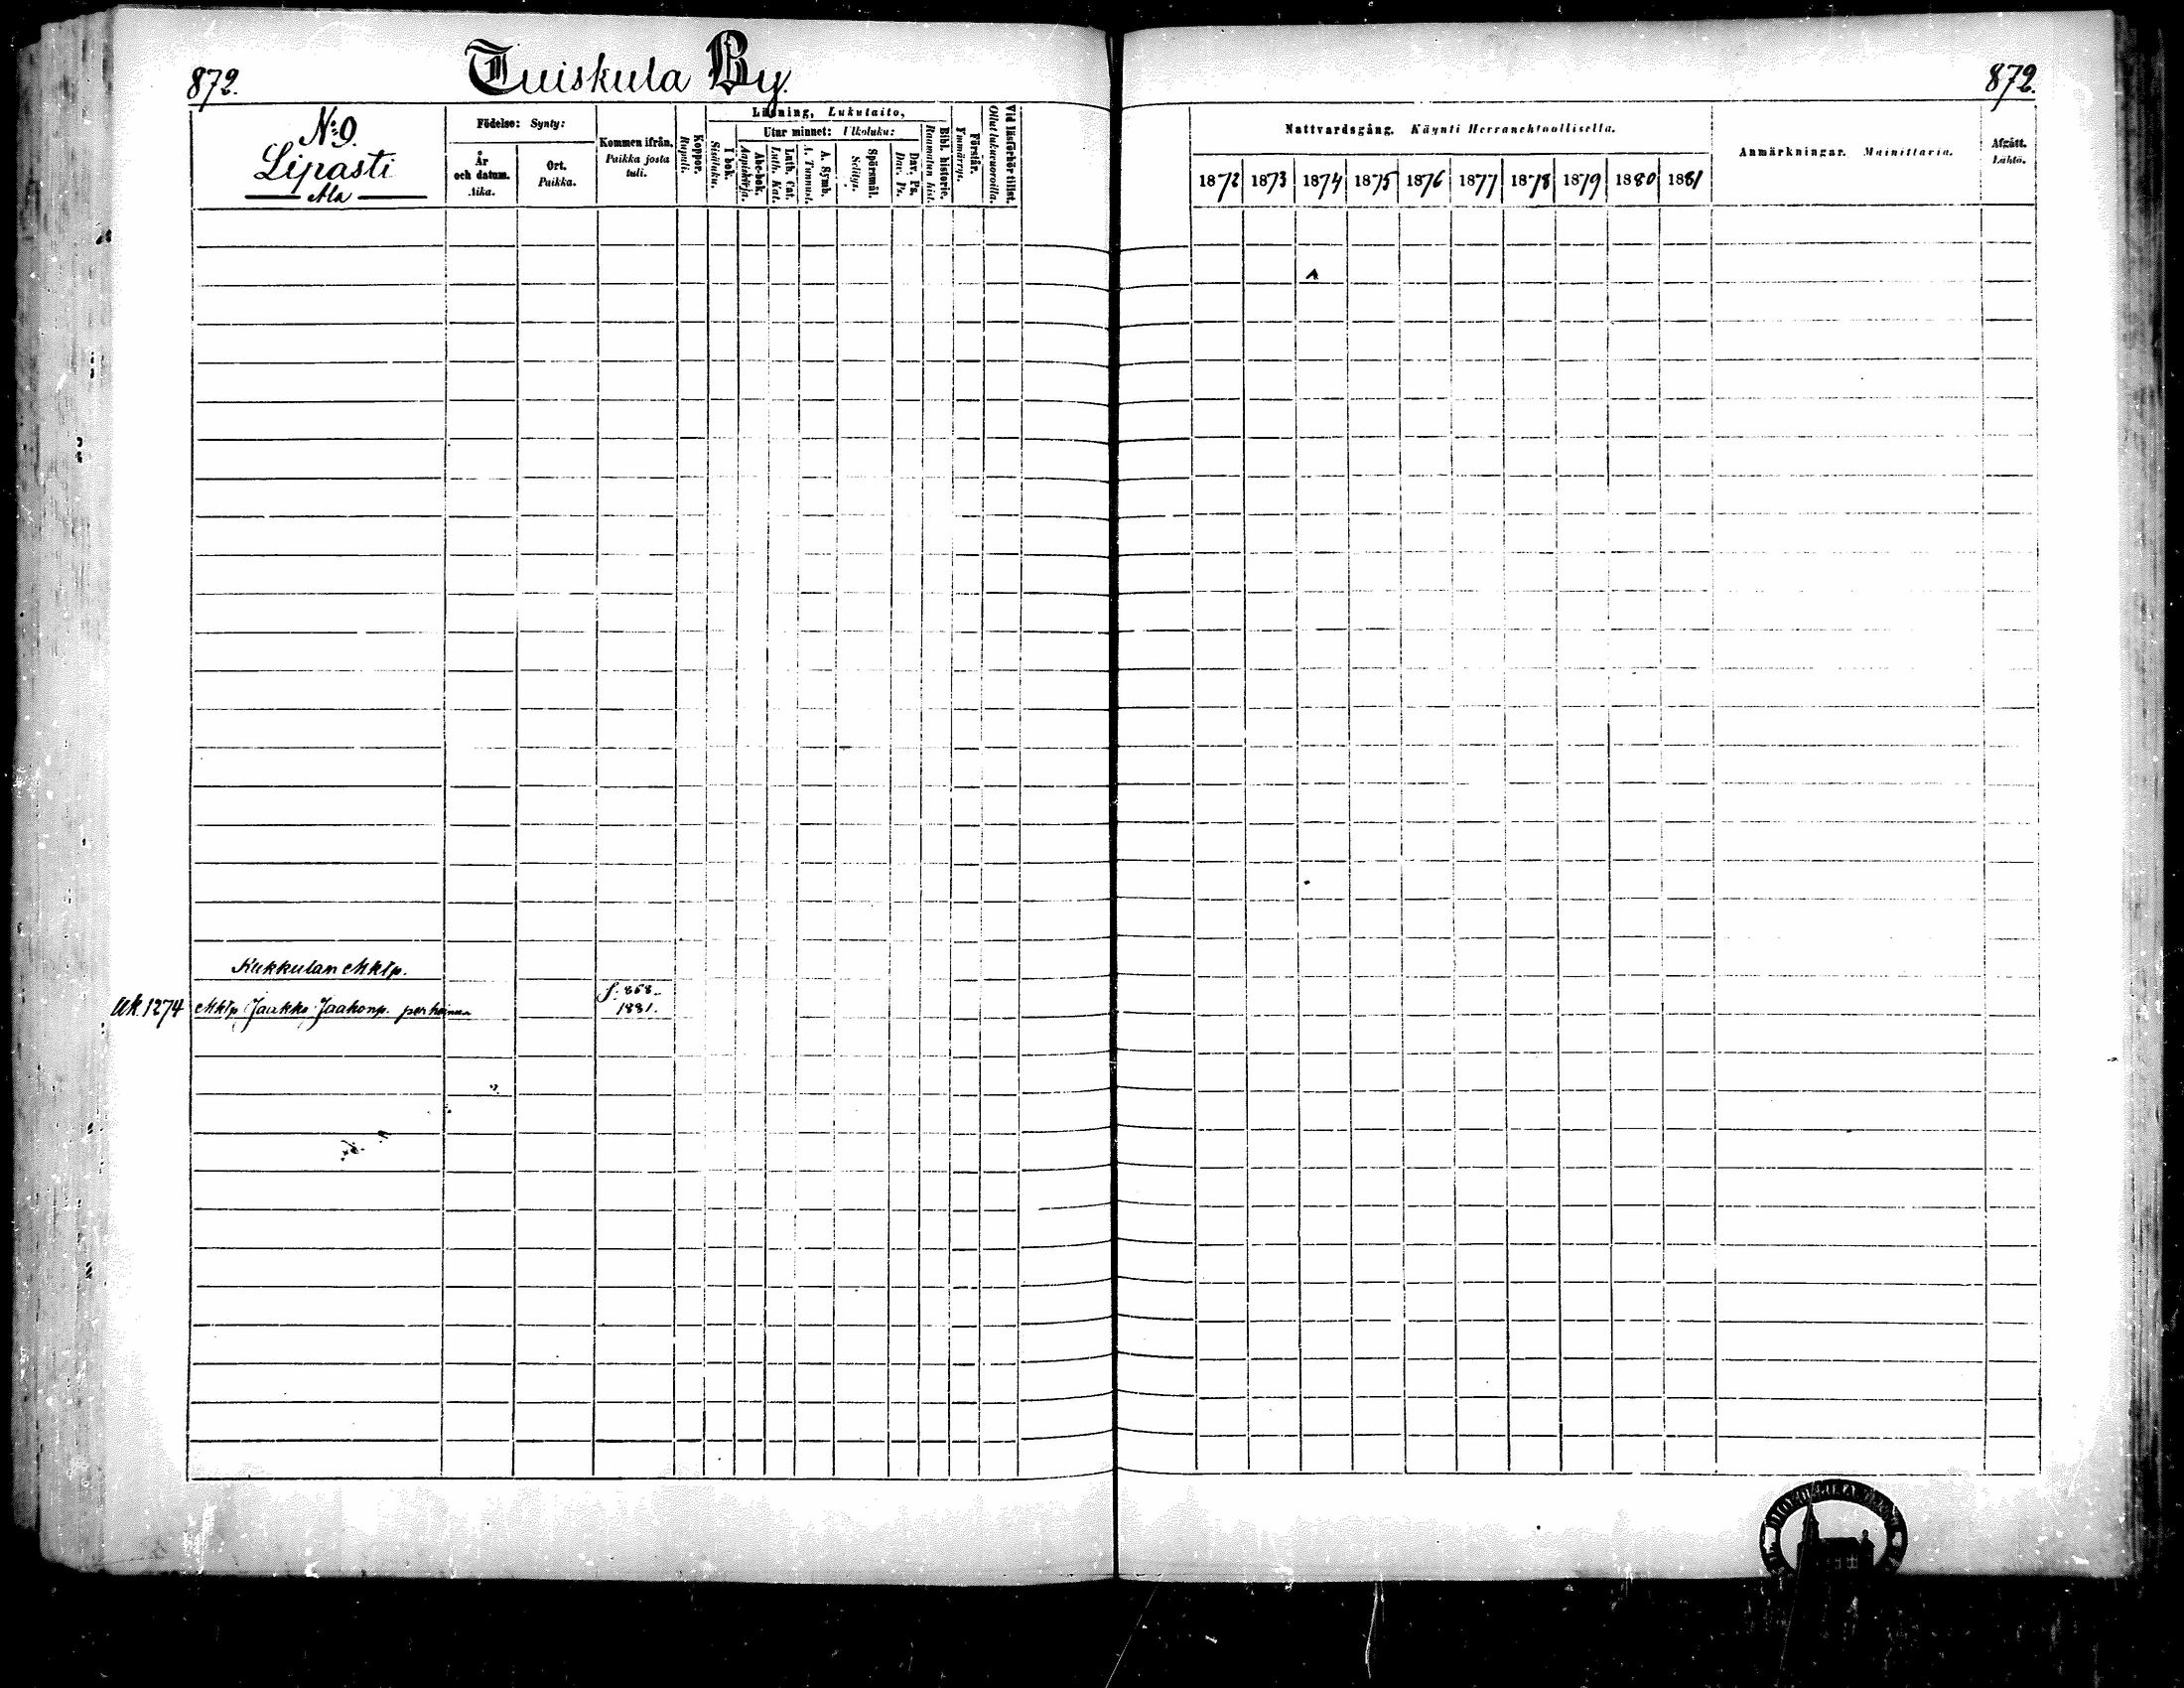 872.
Tuiskula By.
872.
No 9.
Lipasti
Ala
Födelse: Synty:
År och datum. Aika.
Ort. Paikka.
Kommen ifrån. Paikka josta tuli.
Koppor. Rupuli.
Läsning, Lukutaito,
I bok. Sisäluku.
Utur minnet: Ulkoluku:
Abc-bok. Aapiskirja.
Luth. Cat. Luth. Kat.
A. Symb. A. Tunnust.
Spörsmål. Selitys.
Dav. Ps. Dav. Ps.
Bibl. historie. Raamatun hist.
Förstår. Ymmärrys.
Vid läsförhör tillst. Ollut lukuvuoroilla.
Nattvardsgång. Käynti Herranehtoollisella.
1872 1873 1874 1875 1876 1877 1878 1879 1880 1881
Anmärkningar. Mainittavia.
Afgått. Lähtö.
Kukkulan Mktp.
f. 868.
Uk. 1274 Mktp Jaakko Jaakonp. perheineen 1881.